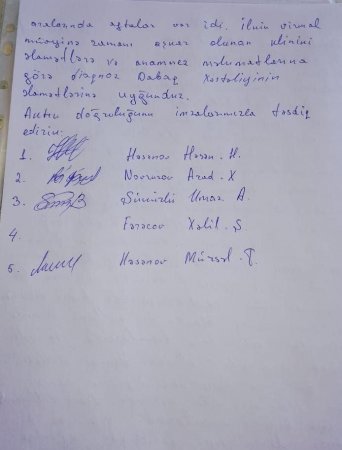 aralarında aftalar var idi. İlkin vizual
müayinə zamanı aşkar olunan klinini
əlamətlərə və anamnez məlumatlarına
görə diaqnoz Dabaq Xəstəliyinin
əlamətlərinə uyğundur.
Aktın doğruluğunu imzalarımızla təsdiq
edirik.
1. Həsənov Həsən. H.
2. Novruzov Azad. X
3. Ümaz A.
4. Fərəcov Xəlil. Ş
5. Həsənov Mürsəl. T.